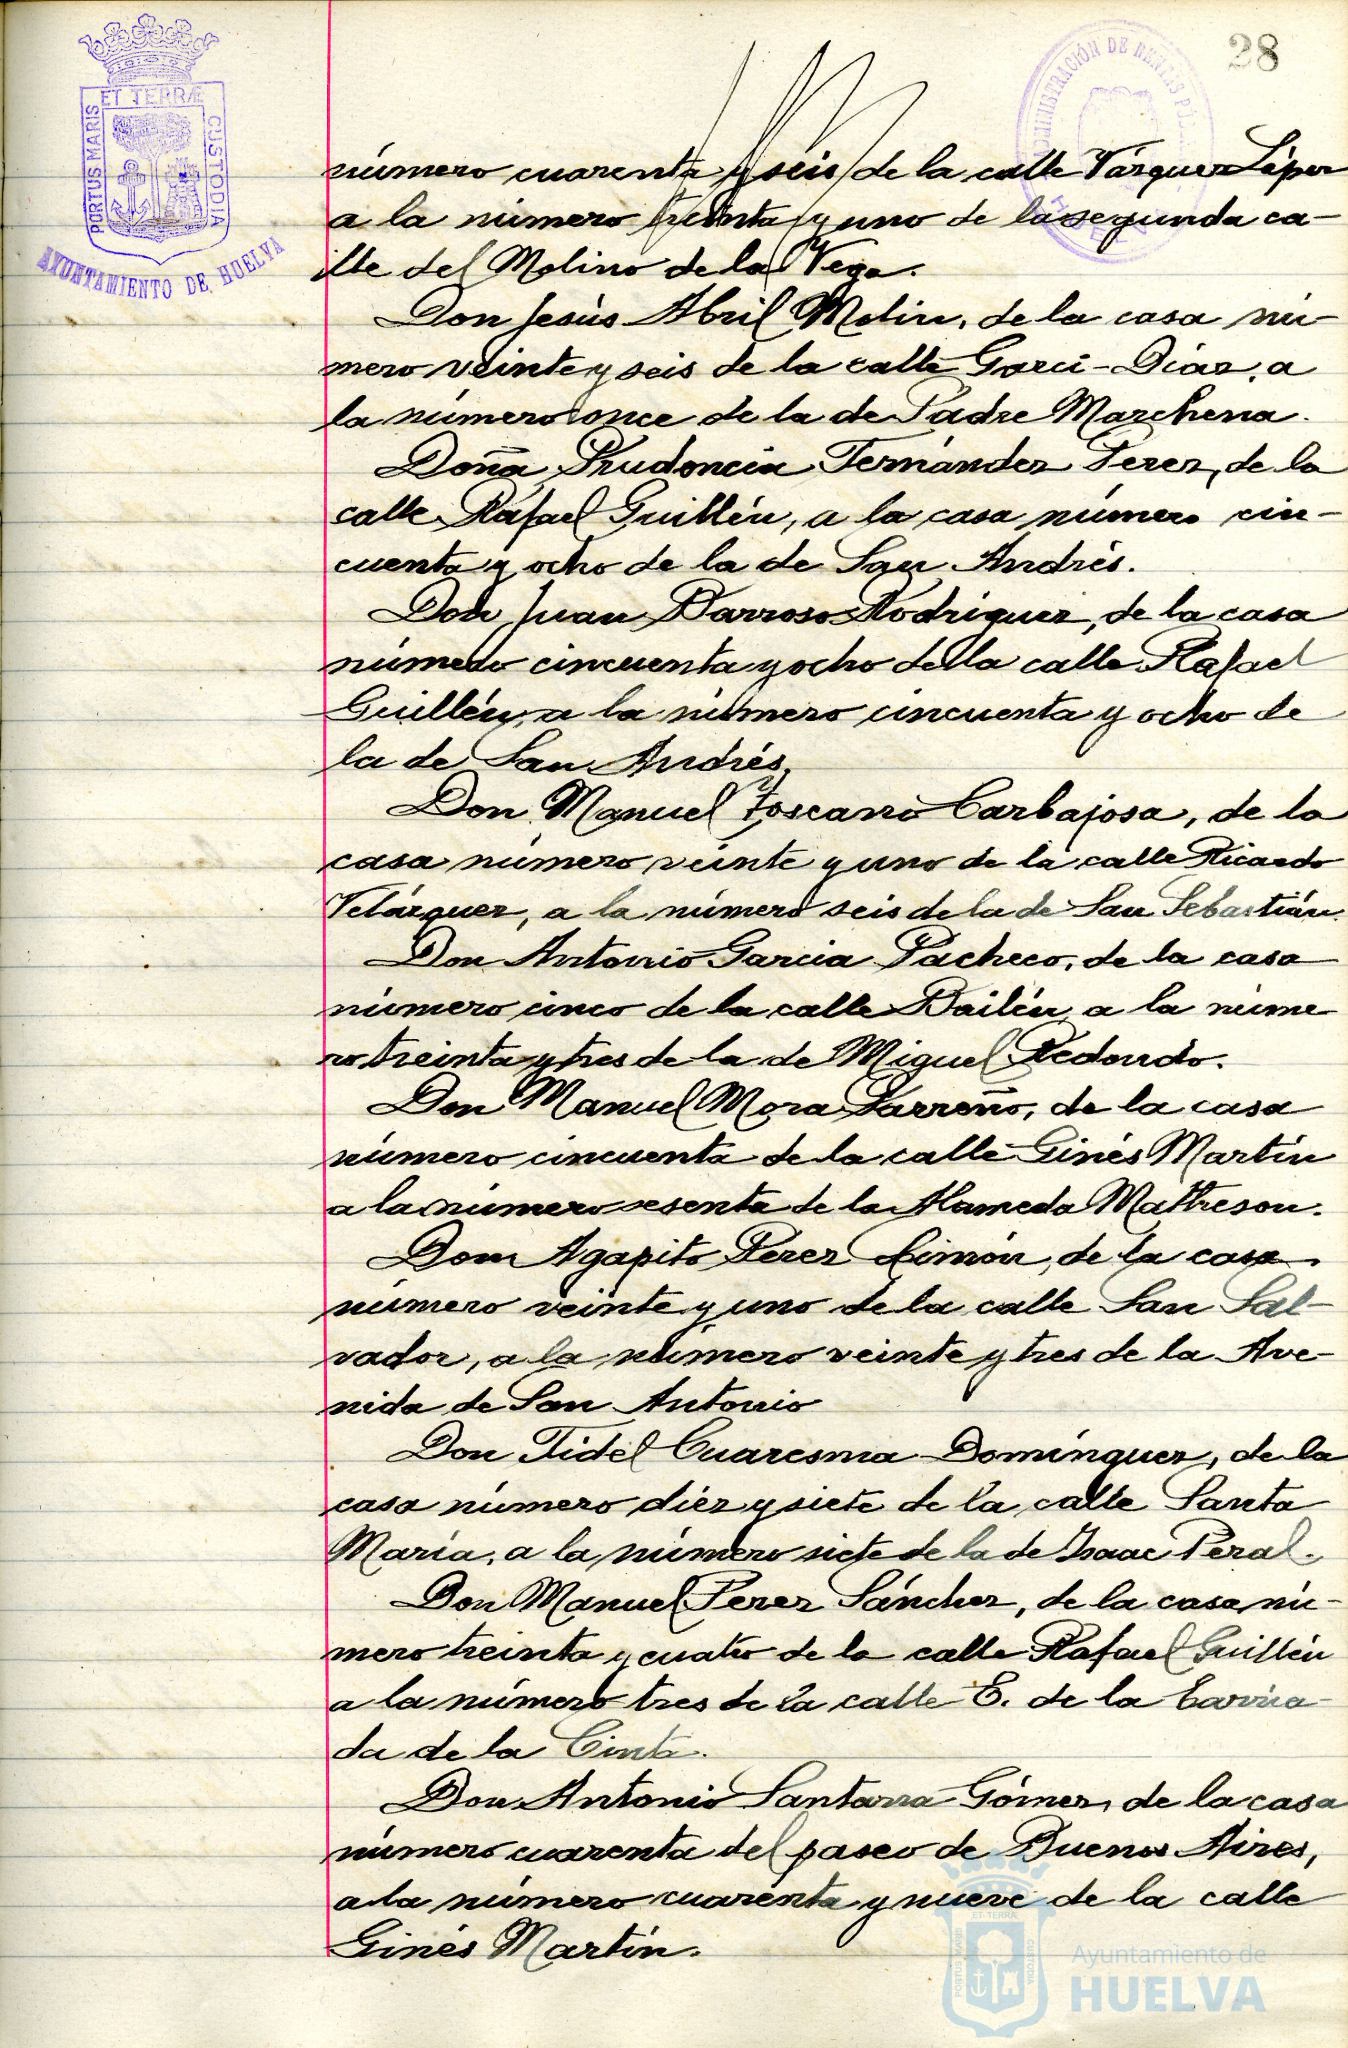 28
PORTUS MARIS ET TERRÆ CUSTODIA
AYUNTAMIENTO DE HUELVA
ADMINISTRACIÓN DE RENTAS
número cuarenta y seis de la calle Vázquez López
a la número treinta y uno de la segunda ca-
lle del Molino de la Vega.
Don Jesús Abril Molin, de la casa nú-
mero veinte y seis de la calle Garci-Díaz, a
la número once de la de Padre Marchena.
Doña Prudencia Fernández Perez, de la
calle Rafael Guillén, a la casa número cin-
cuenta y ocho de la de San Andrés.
Don Juan Barroso Rodriguez, de la casa
número cincuenta y ocho de la calle Rafael
Guillén, a la número cincuenta y ocho de
la de San Andrés.
Don Manuel Toscano Carbajosa, de la
casa número veinte y uno de la calle Ricardo
Velázquez, a la número seis de la de San Sebastián.
Don Antonio Garcia Pacheco, de la casa
número cinco de la calle Bailén a la núme
ro treinta y tres de la de Miguel Redondo.
Don Manuel Mora Parreño, de la casa
número cincuenta de la calle Ginés Martín
a la número sesenta de la Alameda Mattreson.
Don Agapito Perez Limón, de la casa
número veinte y uno de la calle San Sal-
vador, a la número veinte y tres de la Ave-
nida de San Antonio
Don Fidel Cuaresma Domínguez, de la
casa número diez y siete de la calle Santa
María, a la número siete de la de Isaac Peral.
Don Manuel Perez Sánchez, de la casa nú-
mero treinta y cuatro de la calle Rafael Guillén
a la número tres de la calle E. de la barria-
da de la Cinta.
Don Antonio Santana Gómez, de la casa
número cuarenta del paseo de Buenos Aires,
a la número cuarenta y nueve de la calle
Ginés Martín.
Ayuntamiento de
HUELVA